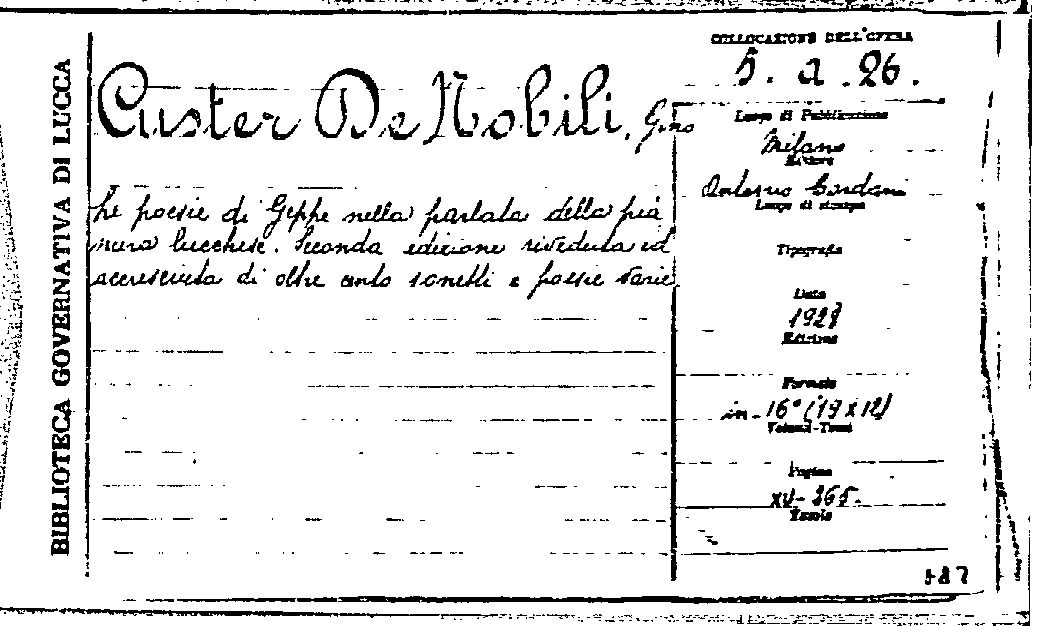 BIBLIOTECA GOVERNATIVA DI LUCCA
COLLOCAZIONE DELL'OPERA
5. a. 26.
Custer De Nobili, Gino
Le poesie di Geppe nella parlata della pia
nura lucchese. Seconda edizione riveduta ed
accresciuta di oltre cento sonetti e poesie varie.
Luogo di Pubblicazione
Milano
Editore
Antonio Cordani
Luogo di stampa
Tipografia
Data
1928
Edizione
Formato
in-16° (19x12)
Volumi-Tomi
Pagine
XV-265.
Tavole